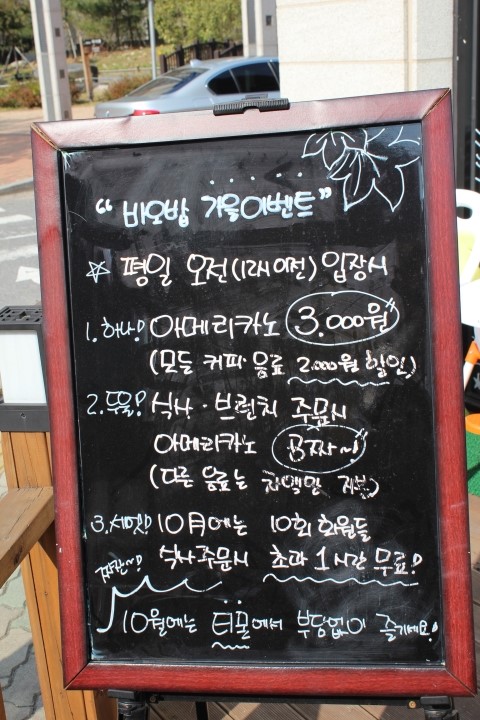 “비오밥 겨울이벤트”
☆ 평일 오전(12시 이전) 입장시
1. 하나! 아메리카노 3.000원
(모든 커피·음료 2.000원 할인)
2. 두울! 식사·브런치 주문시
아메리카노 공짜~!
(다른 음료는 차액만 지불)
3. 세엣! 10月에는 10회 회원들
식사주문시 초과 1시간 무료!
짜잔~!
10월에는 티몬에서 부담없이 즐기세요!